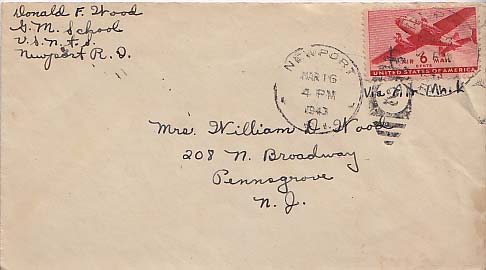 Donald F. Wood
G.M. School
U.S.N.T.S.
Newport R.I.
NEWPORT
MAR 16
4 PM
1943
AIR 6 MAIL
CENTS
UNITED STATES OF AMERICA
Via Air
Mrs. William D. Wood
208 N. Broadway
Pennsgrove
N.J.